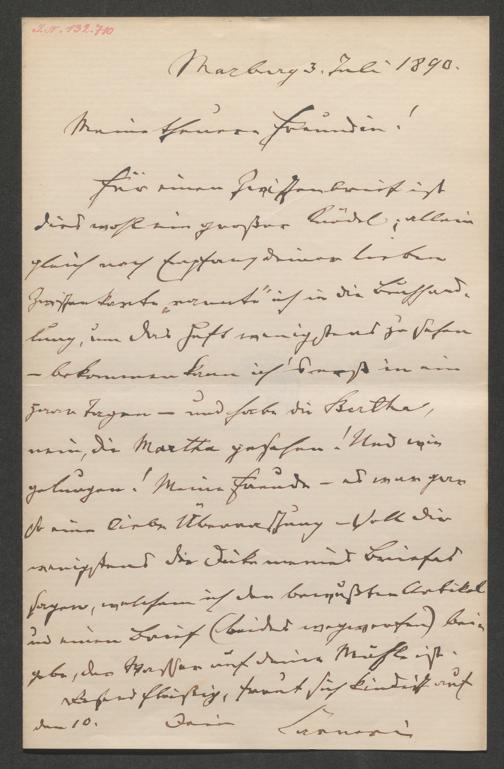 J.N. 132.710
Marburg 3. Juli 1890.
Meine theuere Freundin!
Für einen Zwischenbrief ist
dies wohl ein großer Knödel; allein
gleich nach Empfang deiner lieben
Zwischenkarte „rannte" ich in die Buchhand-
lung, um das Heft wenigstens zu sehen
– bekommen kann ich's erst in ein
paar Tagen – und habe die Bertha,
nein, die Martha gesehen! Und wie
gelungen! Meine Freude – es war gar
so eine liebe Überraschung – soll dir
wenigstens die Dicke meines Briefes
sagen, welchem ich den bewußten Artikel
und einen Brief (beides wegwerfen) bei-
gebe, der Wasser auf deine Mühle ist.
fleißig, freut sich kindisch auf
den 10. Dein Carneri